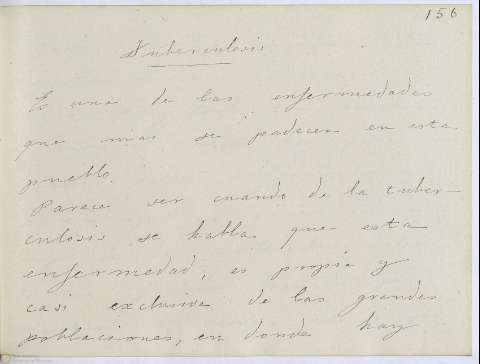 156
Tuberculosis
Es una de las enfermedades
que mas se padecen en este
pueblo.
Parece ser cuando de la tuber-
culosis se habla que esta
enfermedad, es propia y
casi exclusiva de las grandes
poblaciones, en donde hay